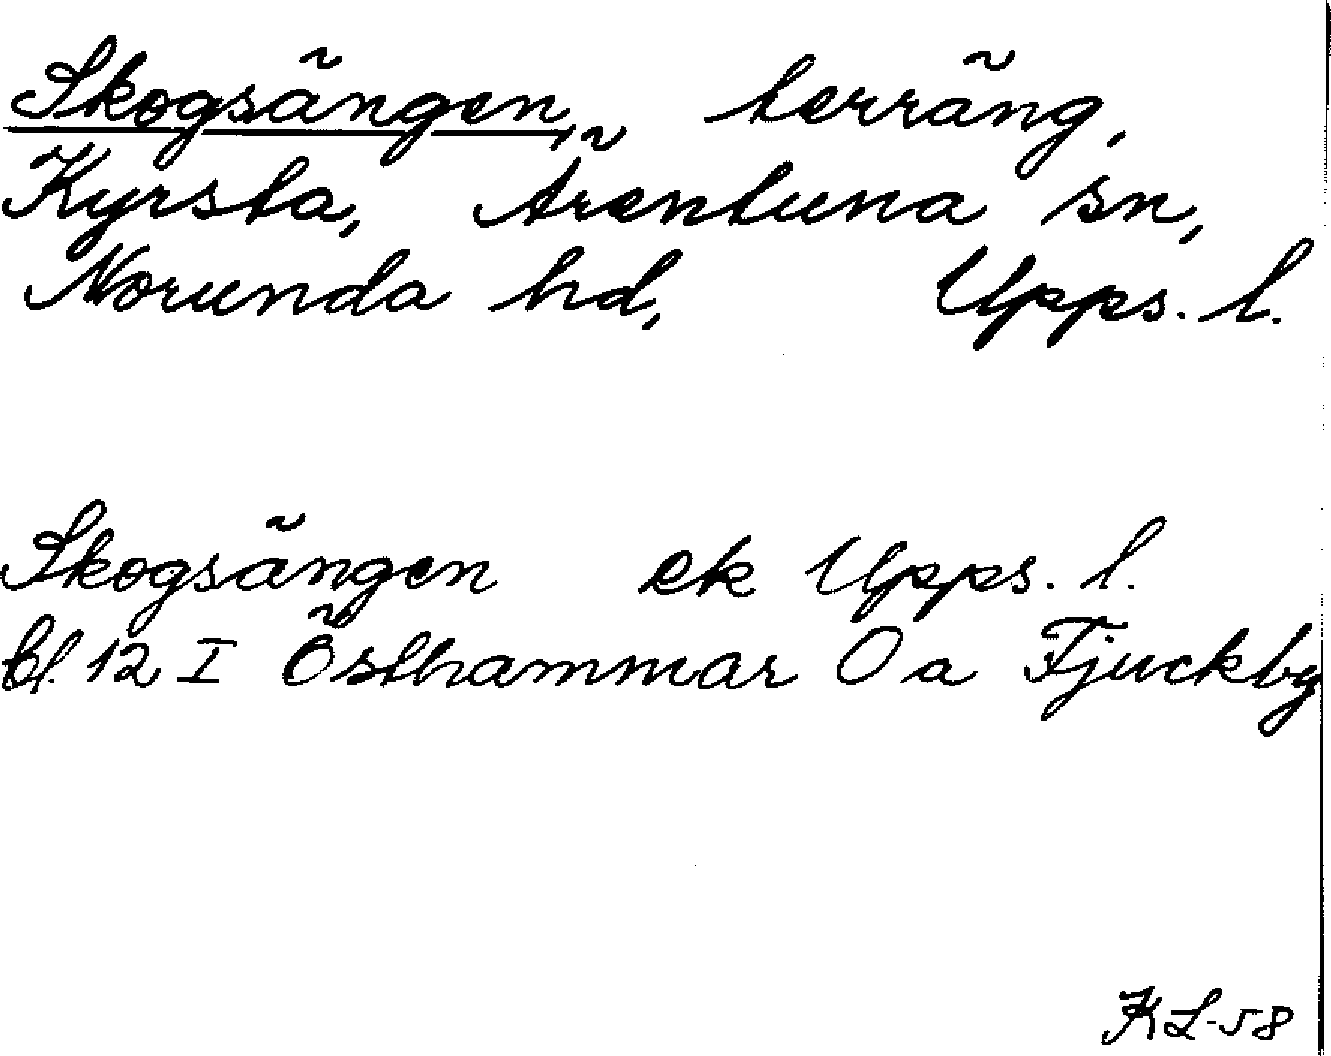 Skogsängen, terräng,
Kyrsta, Ärentuna sn,
Norunda hd, Upps. l.
Skogsängen ek Upps. l.
bl. 12 I Östhammar O a Fjuckby
KL-58